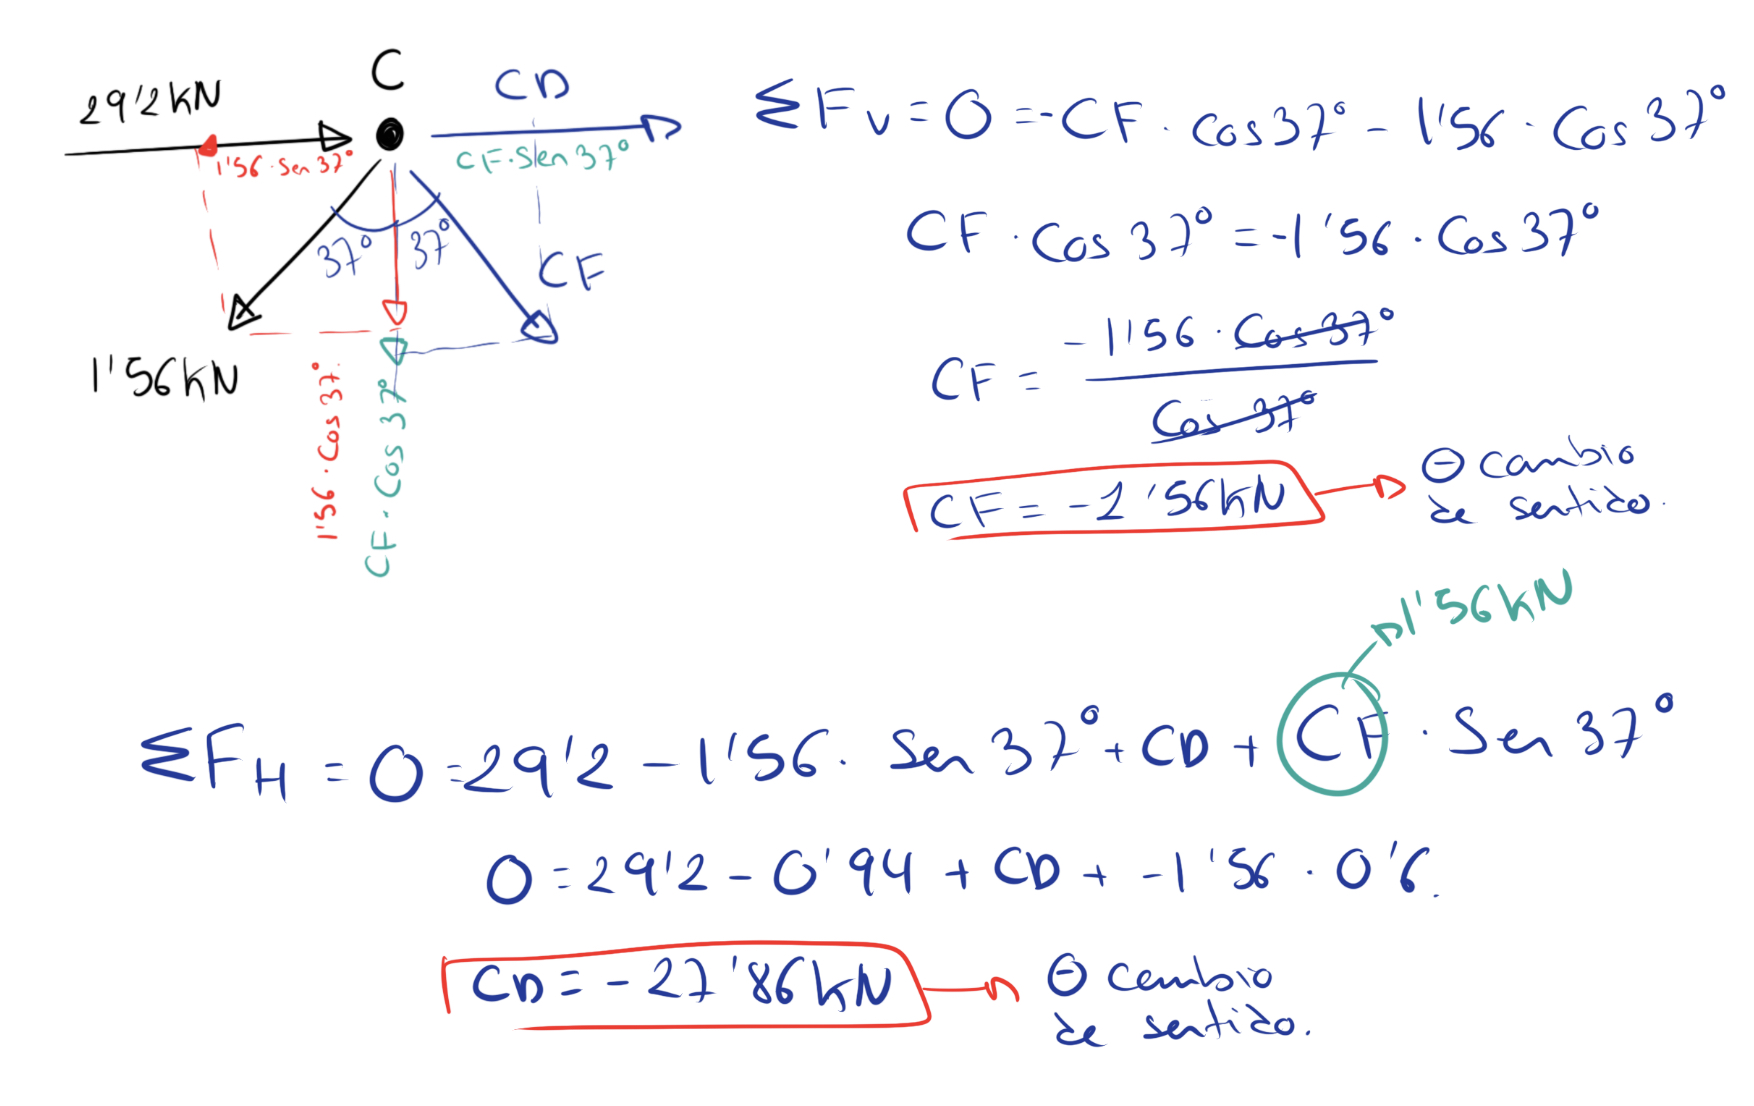 C
29'2kN
CD
1'56·Sen 37°
CF·Sen 37°
37°
37°
CF
1'56kN
1'56·Cos 37°
CF·Cos 37°
ΣFv = 0 = -CF · Cos 37° - 1'56 · Cos 37°
CF · Cos 37° = -1'56 · Cos 37°
CF = -1'56 · Cos 37° / Cos 37°
CF = -1'56kN
⊖ cambio
de sentido.
1'56kN
ΣFH = 0 = 29'2 - 1'56 · Sen 37° + CD + CF · Sen 37°
0 = 29'2 - 0'94 + CD + -1'56 · 0'6.
CD = -27'86kN
⊖ cambio
de sentido.